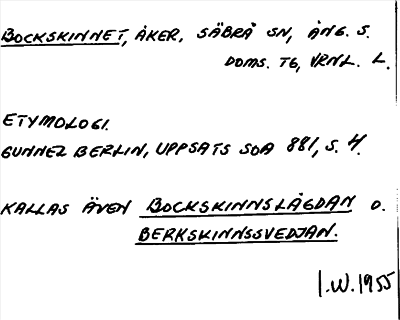 BOCKSKINNET, ÅKER, SÄBRÅ SN, ÅNG. S.
DOMS. TG, VRNL. L.
ETYMOLOGI.
GUNNEL BERLIN, UPPSATS SOA 881, S. 4.
KALLAS ÄVEN BOCKSKINNSLÄGDAN O.
BERKSKINNSSVEDJAN.
I.W. 1955